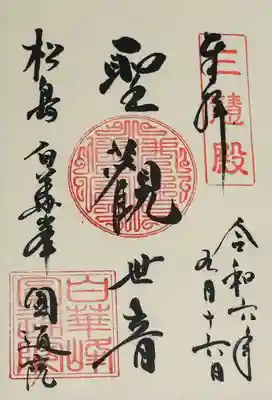 三慧殿
奉拝
令和六年
五月十六日
聖観世音
松島 白華峯 圓通院
白華峰
圓通院